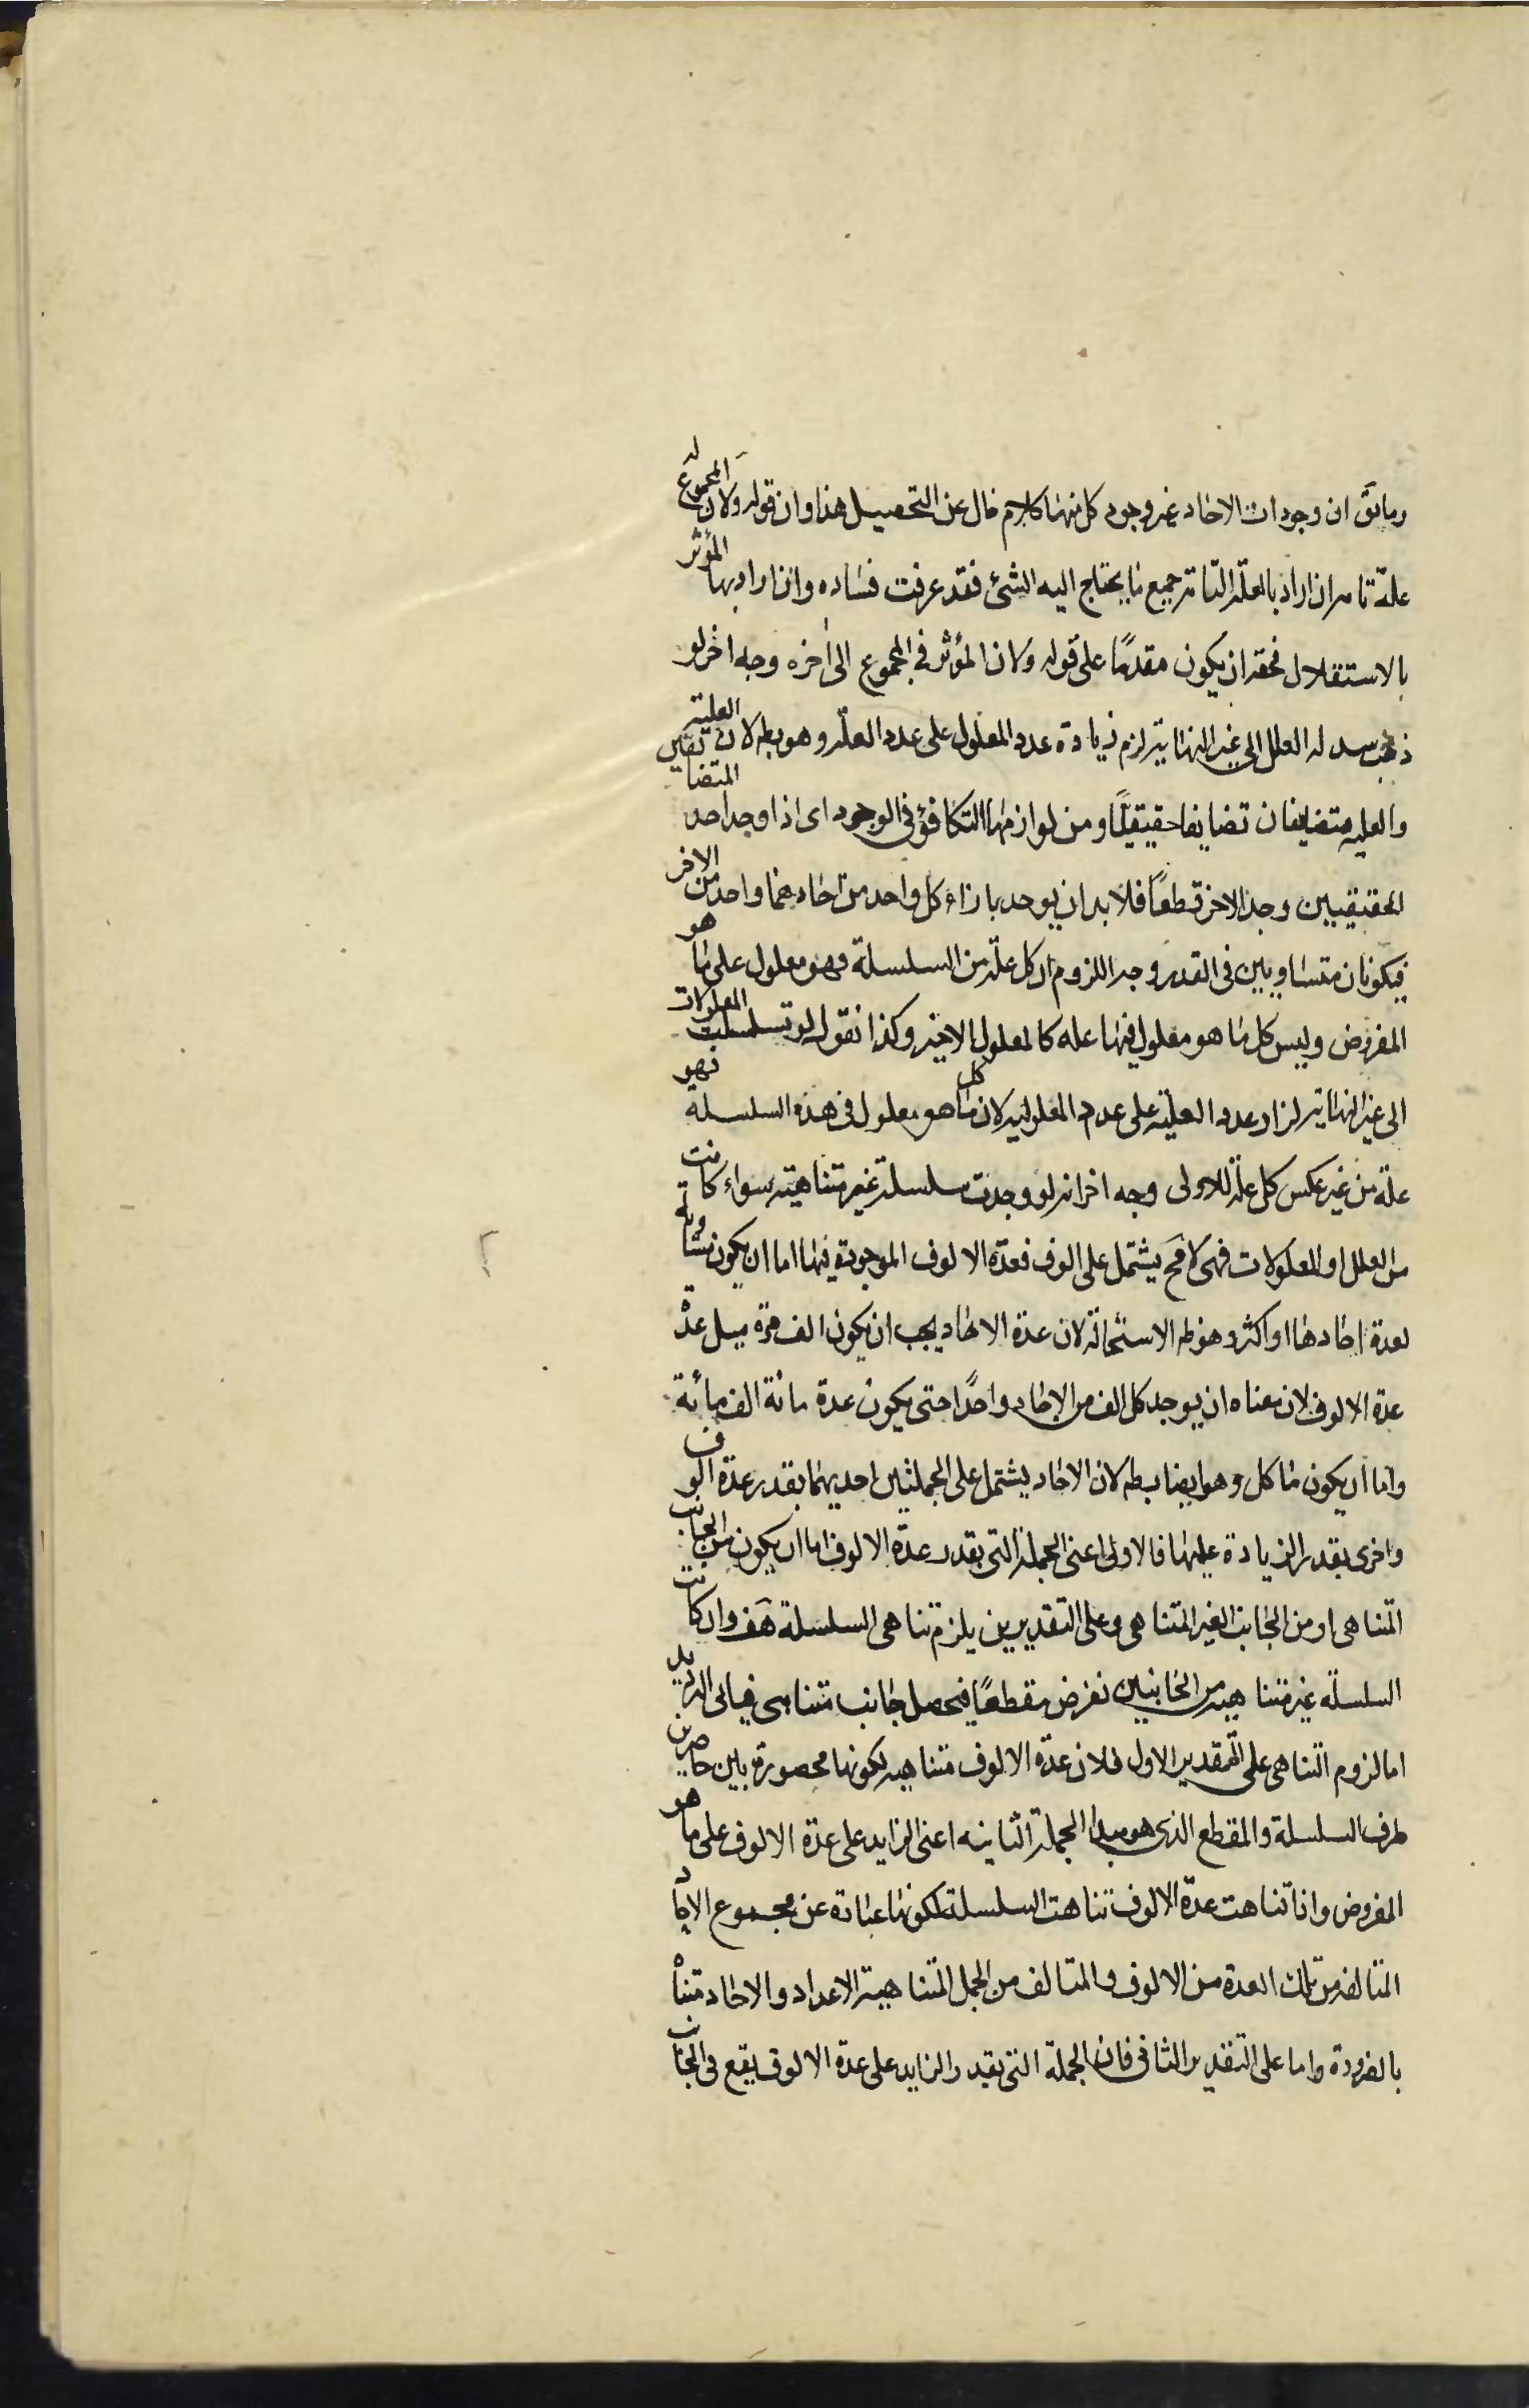 وما يق ان وجودات الاحاد غير وجود كل منها كلام خال عن التحصيل هذا وان قوله ولان المجموع له
علة تامه ان اراد بالعلة التامه جميع ما يحتاج اليه الشئ فقد عرفت فساده وان اراد بها المؤثر
بالاستقلال فحقه ان يكون مقدمًا على قوله ولان المؤثر في المجموع الى اخره وجه اخر لو
ذهب سلسله العلل الى غير النهايه لزم زيادة عدد المعلول على عدد العله وهو بط لان العلية
والعليه متضايفان تضايفا حقيقيًا ومن لوازمها التكافؤ في الوجود اى اذا وجد احد المتضايفين
الحقيقيين وجد الاخر قطعًا فلا بد ان يوجد بازاء كل واحد من احادهما واحد من الاخر
فيكونان متساويين في القدر وجه اللزوم ان كل علة من السلسلة فهو معلول على ما هو
المفروض وليس كل ما هو معلول فيها عله كالمعلول الاخير وكذا نقول لو تسلسلت المعلولات
الى غير النهايه لزاد عدد العلية على عدد المعلوليه لان كل ما هو معلول في هذه السلسلة فهو
علة من غير عكس كلى كالعلة الاولى وجه اخر انه لو وجدت سلسلة غير متناهية سواء كانت
من العلل او المعلولات فهى لا مح يشتمل على الوف فعدة الالوف الموجودة فيها اما ان يكون مساوية
لعدة احادها او اكثر وهو ظ الاستحالة لان عدة الاحاد يجب ان يكون الف مرة مثل عدْ
عدة الالوف لان معناه ان يوجد كل الف من الاحاد واحدًا حتى يكون عدة مائة الف مائة
واما ان يكون اقل وهو ايضا بط لان الاحاد يشتمل على الجملتين احديهما بقدر عدة الوف
واخرى بقدر الزيادة عليها فالاولى اعنى الجملة التى بقدر عدة الالوف اما ان يكون من الجانب
المتناهى او من الجانب الغير المتناهى وعلى التقديرين يلزم تناهى السلسلة هف وان كانت
السلسلة غير متناهيه من الجانبين نفرض مقطعًا فيحصل جانب متناهى فياتى الدليل
اما لزوم التناهى على التقدير الاول فلان عدة الالوف متناهيه لكونها محصورة بين حاصرين
طرف السلسلة والمقطع الذى هو مبدا الجملة الثانيه اعنى الزايد على عدة الالوف على ما هو
المفروض واذا تناهت عدة الالوف تناهت السلسلة لكونها عبارة عن مجموع الاحاد
المتالفه من تلك العدة من الالوف والمتالف من الجمل المتناهية الاعداد والاحاد متناْ
بالضرورة واما على التقدير الثانى فان الجملة التى بقدر الزايد على عدة الالوف يقع في الجانب